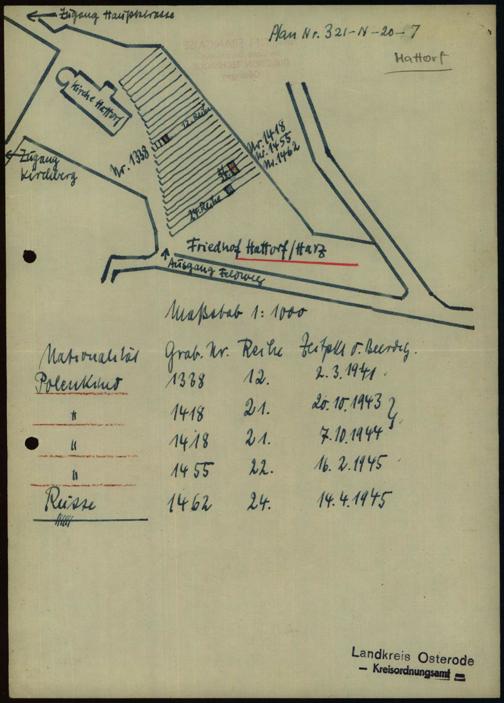 Zugang Hauptstrasse
Plan Nr. 321-N-20-7
Hattorf
Kirche Hattorf
12. Reihe
Nr. 1338
Nr. 1418
Nr. 1455
Nr. 1462
Zugang
Kirchberg
24. Reihe
Friedhof Hattorf/Harz
Ausgang Feldweg
Maßstab 1:1000
Nationalität Grab. Nr. Reihe Zeitpkt d. Beerdig.
Polenkind 1338 12. 2.3.1941
" 1418 21. 20.10.1943
" 1418 21. 7.10.1944
" 1455 22. 16.2.1945
Russe 1462 24. 14.4.1945
Landkreis Osterode
– Kreisordnungsamt –